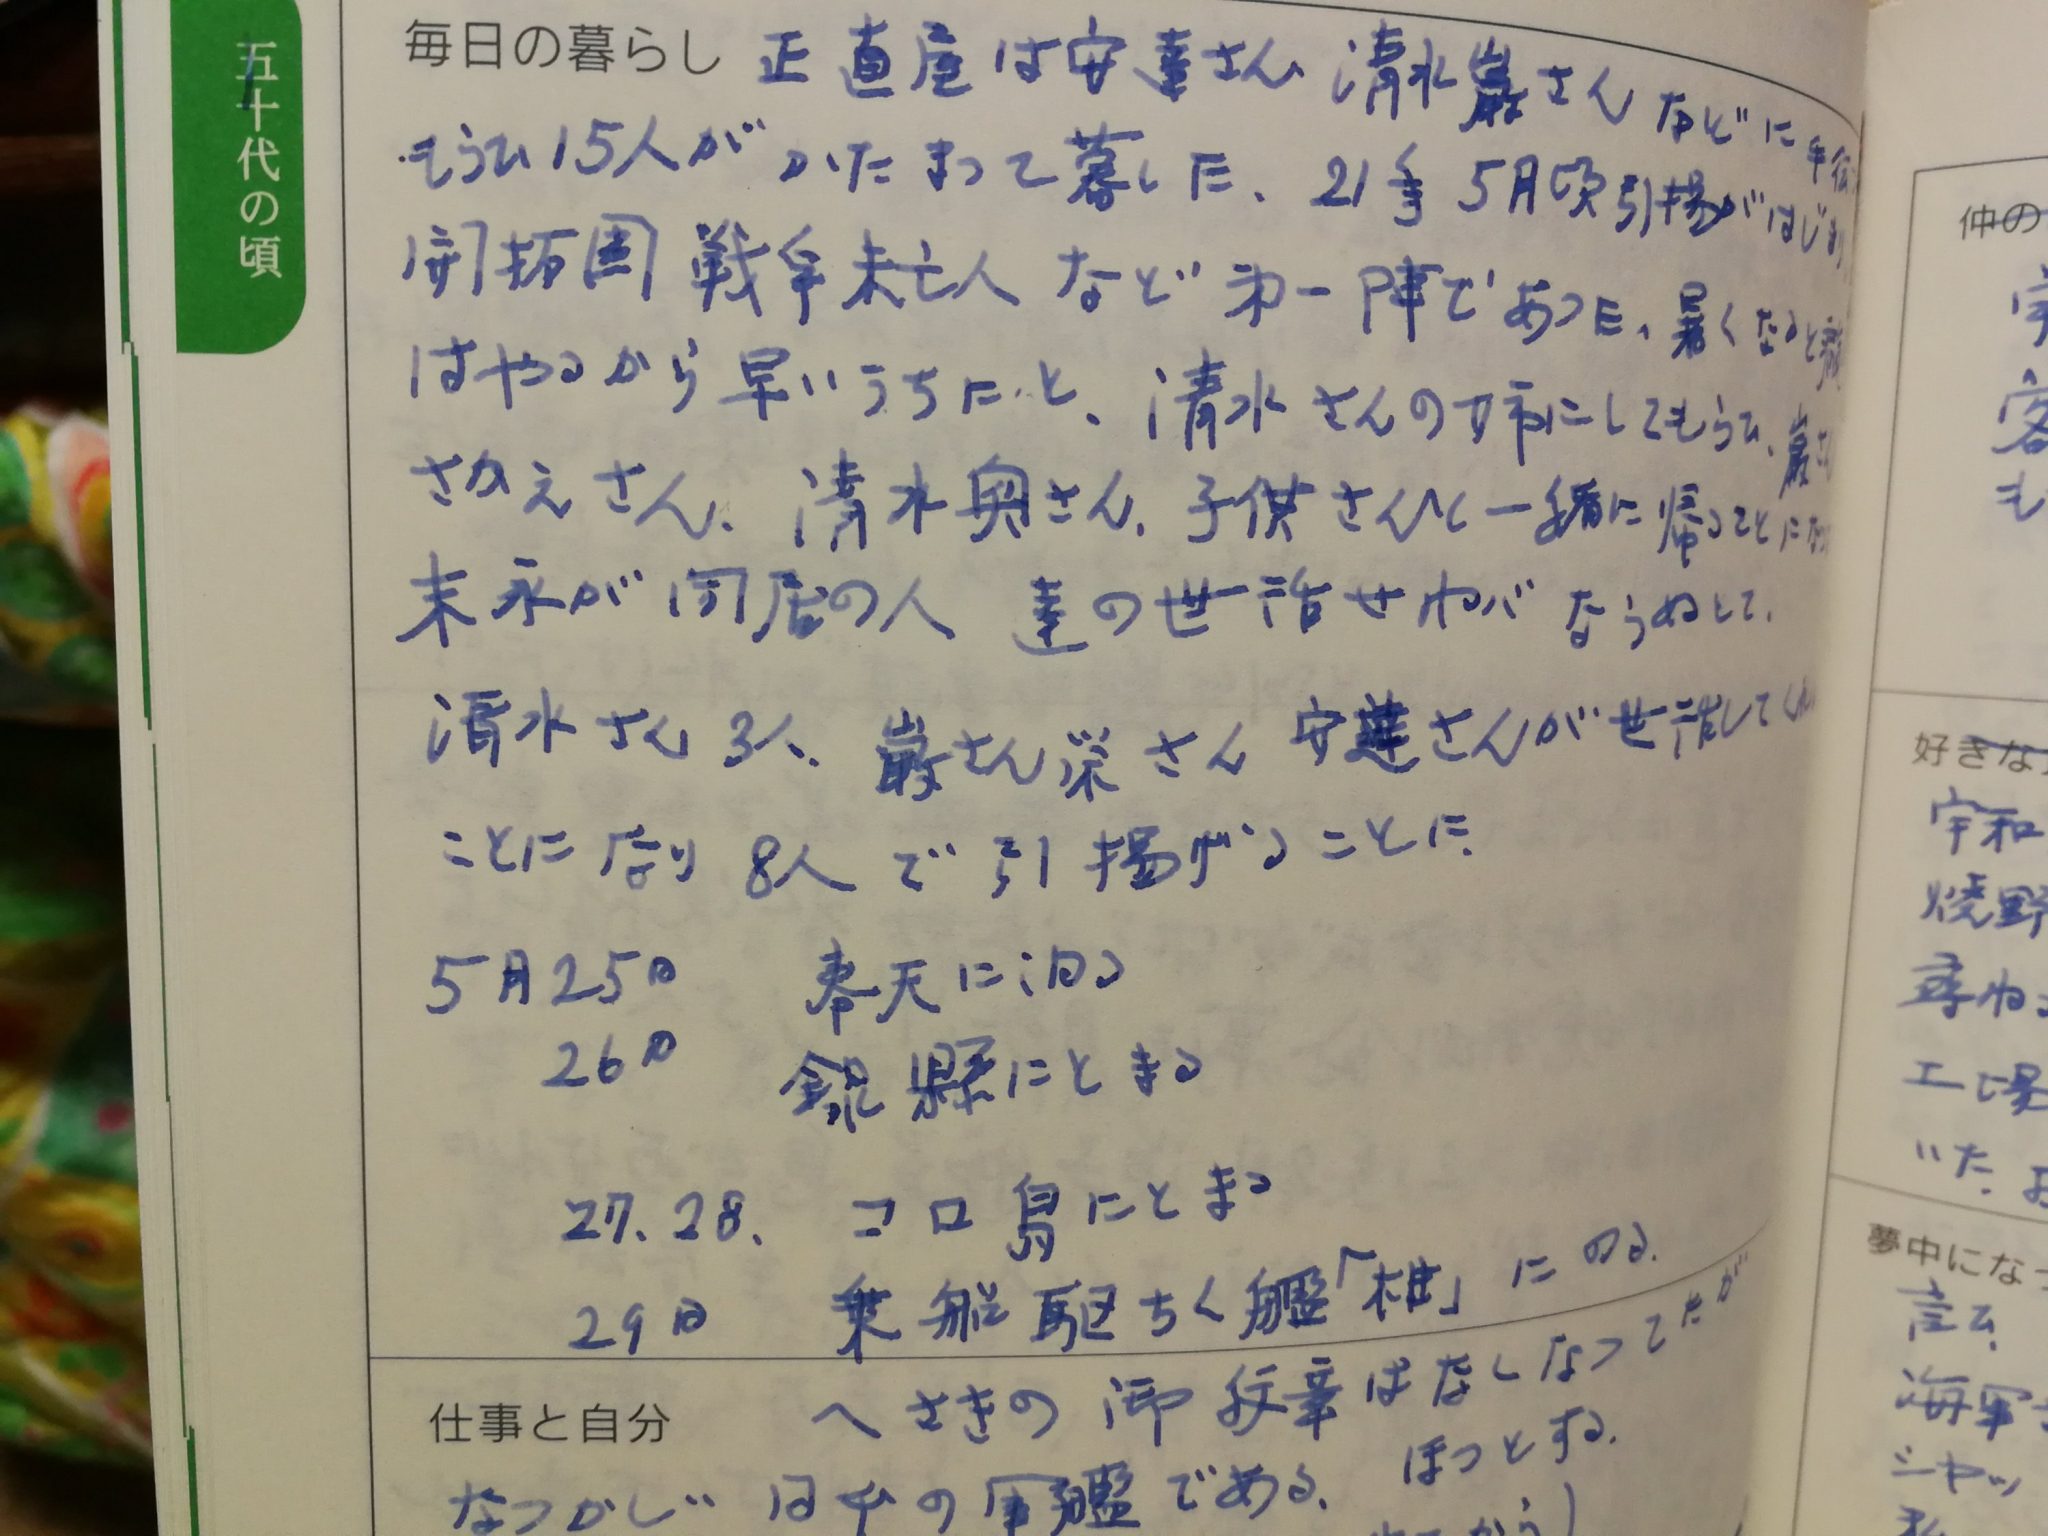 五十代の頃
毎日の暮らし 正直屋は安達さん 清水巌さん などに手伝
もらひ15人が かたまって暮した、21年5月頃引揚がはじまり
開拓団 戦争未亡人 など 第一陣で あった、暑くなると
はやるから早いうちに と、清水さんの姉にしてもらひ、巌さ
さかえさん、清水奥さん、子供さんと一緒に帰ることにな
末永が同居の人 達の世話せねば ならぬとて、
清水さん3人、巌さん栄さん 安達さんが世話してくれ
ことになり 8人で引揚げることに
5月25日 奉天に泊る
26日 錦縣にとまる
27.28. コロ島にとまる
29日 乗船駆ちく艦「椎」にのる.
仕事と自分 へさきの御紋章はなくなってたが
なつかしい 日本の軍艦である. ほっとする.
仲の
客
も
好きな
宇和
焼野
尋ね
工場
いた.
夢中になっ
言ひ、
海軍
シャッ